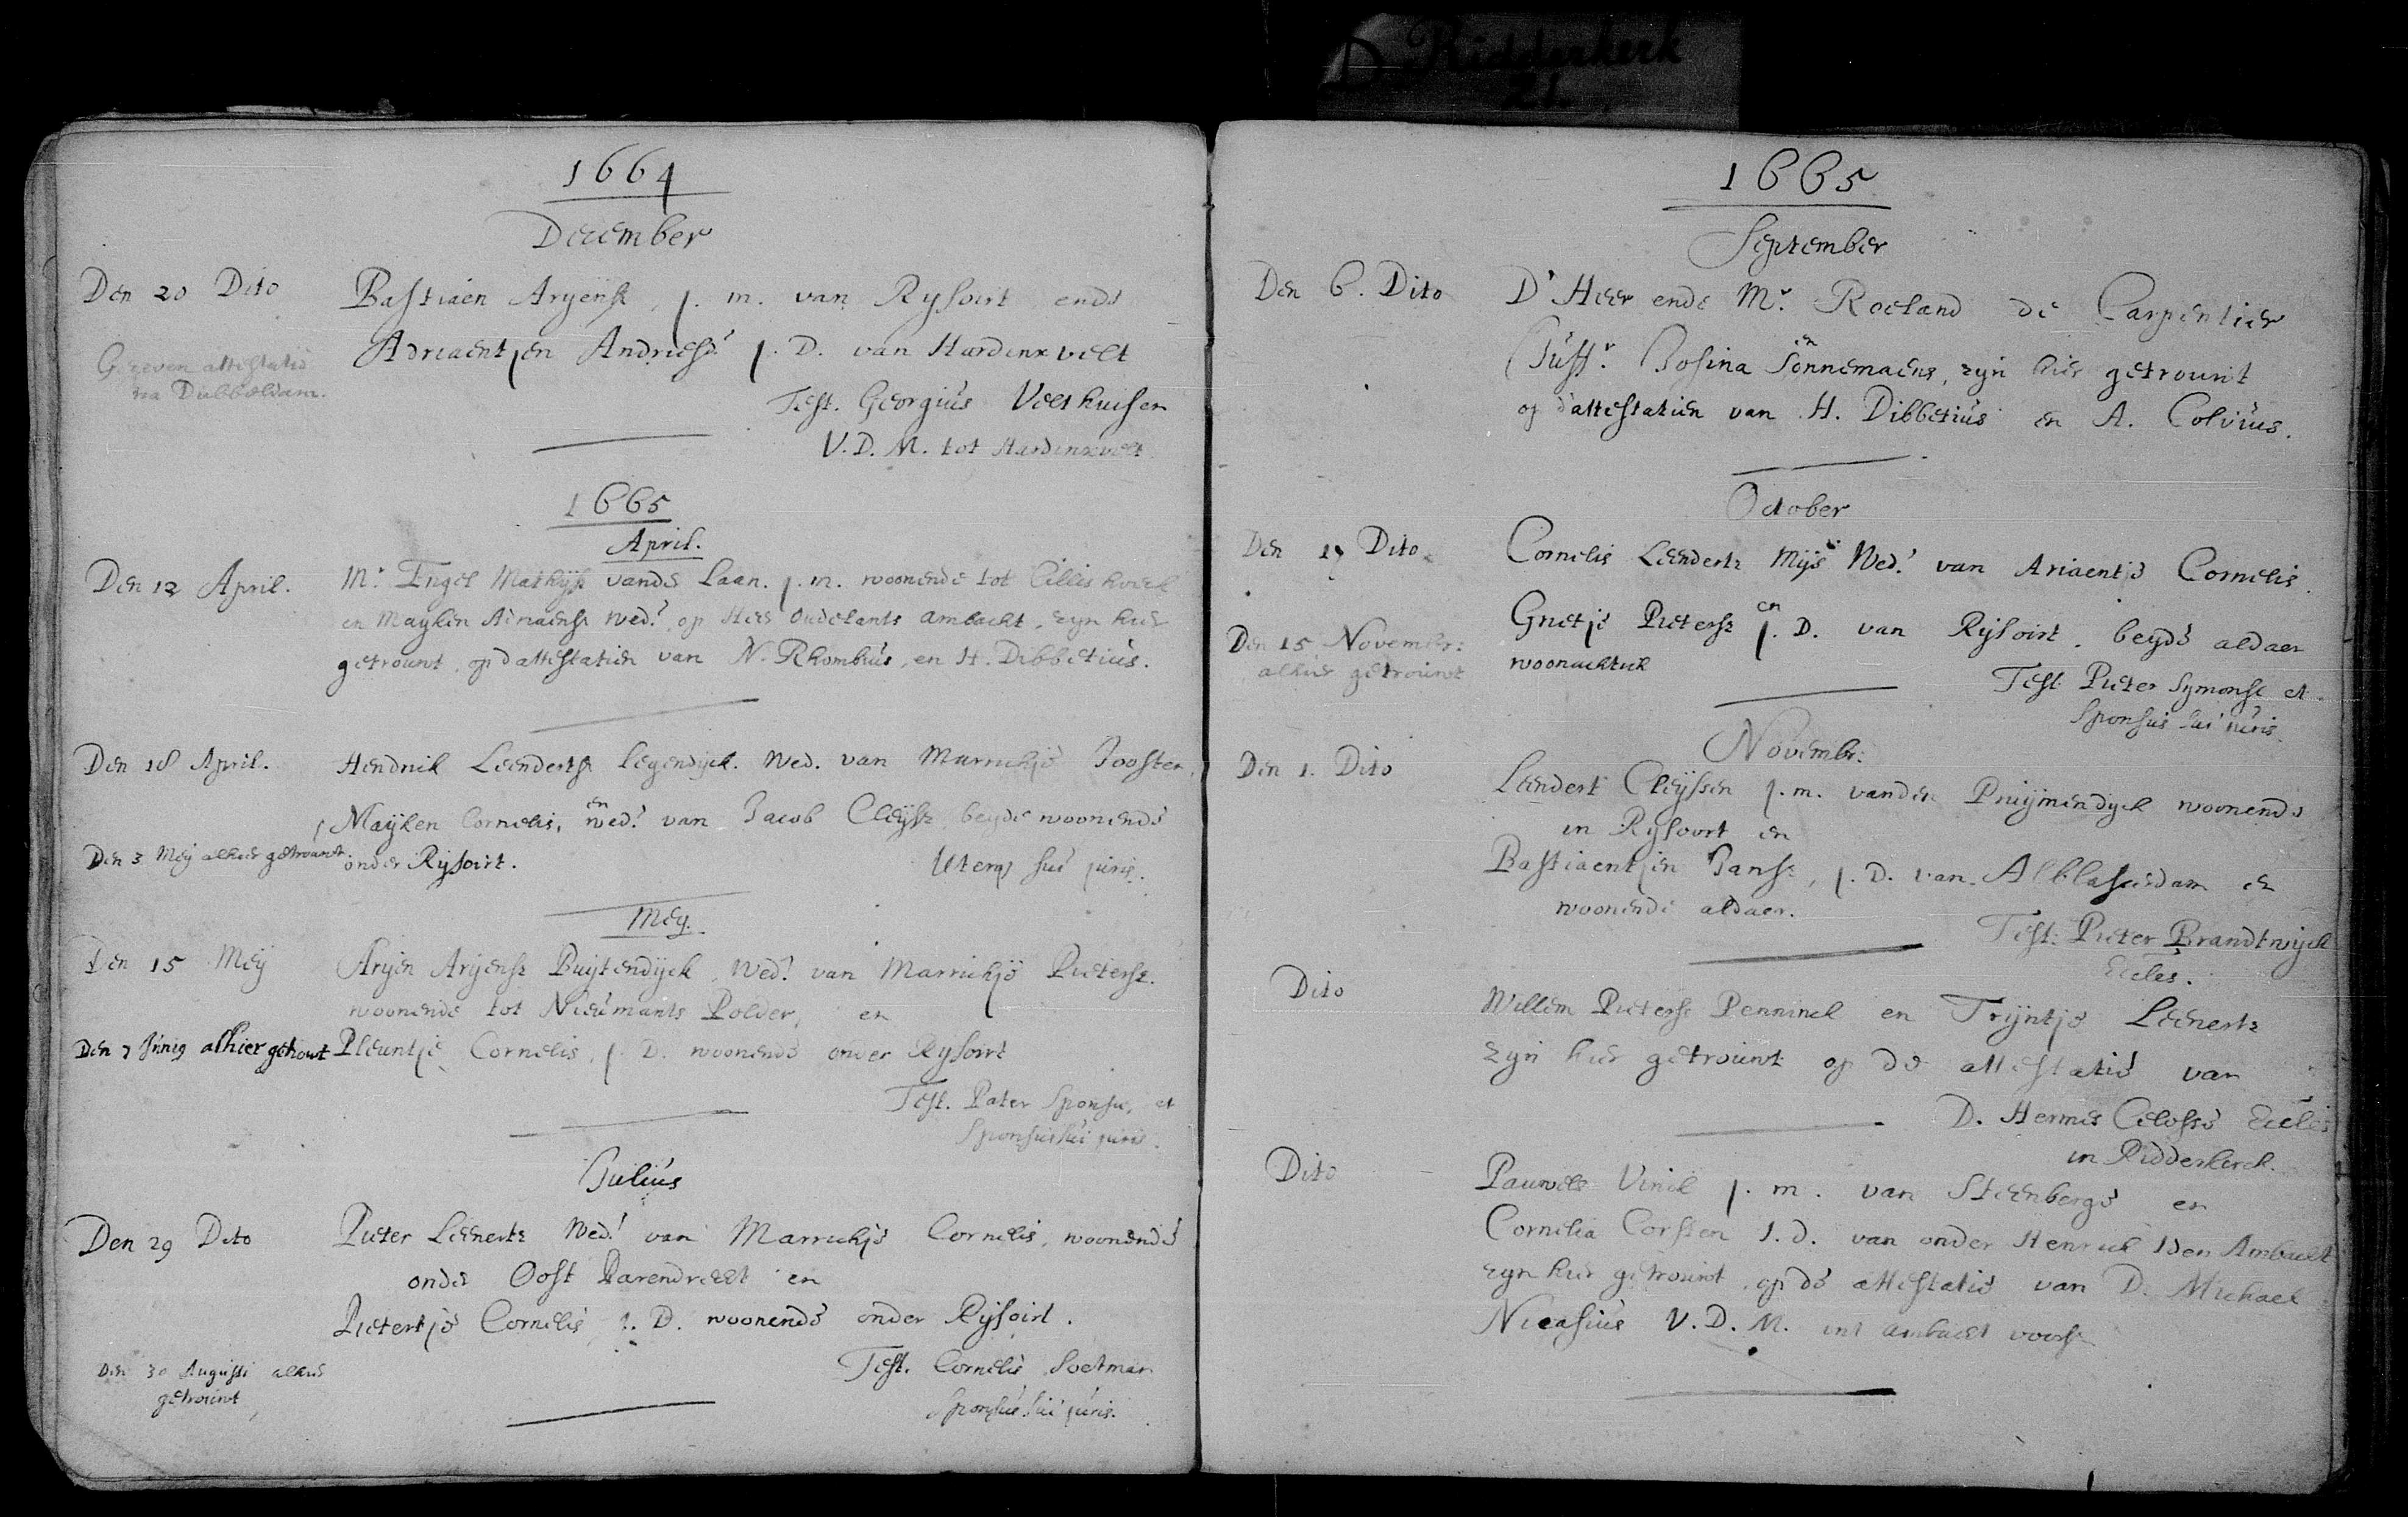 D. Ridderkerk
21.
1664
December
Den 20 Dito
Bastiaen Aryensz, j. m. van Rysoirt ende
Adriaentjen Andriesd. j. D. van Hardinxvelt
Gegeven attestatie
na Dubbeldam.
Test. Georgius Velthuisen
V. D. M. tot Hardinxvelt
1665
April.
Den 12 April.
Mr. Engel Mathijsz vande Laan. j. m. woonende tot Cillishoeck
en Mayken Adriaensz Wed. op Heer Oudelants Ambacht, zyn hier
getrouwt, op d'attestatien van N. Rhombius, en H. Dibbetius.
Den 18 April.
Hendrik Leendertsz Legendijck. Wed. van Marrichje Joosten,
en
Mayken Cornelis, Wed. van Jacob Cleysz, beyde woonende
Den 3 Mey alhier getrouwt.
onder Rysoirt.
Uterq sui juris.
Mey.
Den 15 Mey
Aryen Aryensz Buytendyck, Wed. van Marrichje Pietersz.
woonende tot Nieumants Polder, en
Den 7 Junij alhier getrout
Pleuntje Cornelis, j. D. woonende onder Rysoirt
Test. Pater Sponsæ, et
Sponsus sui juris.
Julius
Den 29 Dito
Pieter Leenertz Wed. van Marrichje Cornelis, woonende
onder Oost Barendrecht en
Pietertje Cornelis, j. D. woonende onder Rysoirt.
Den 30 Augusti alhier
getrouwt
Test. Cornelis Soetman
Sponsus sui juris.
1665
September
Den 6. Dito
D'Heer ende Mr. Roeland de Carpentier
en
Juffr. Josina Sonnemaens, zyn hier getrouwt
op d'attestatien van H. Dibbetius en A. Colvius.
October
Den 17 Dito
Cornelis Leendertz Mijs Wed. van Ariaentje Cornelis.
en
Grietje Pietersz j. D. van Rijsoirt. beyde aldaer
woonachtich
Den 15 Novembr:
alhier getrouwt
Test. Pieter Symonsz et
Sponsus sui juris
Novembr:
Den 1. Dito
Leendert Cleyssen j. m. vanden Pruijmendyck woonende
in Rysoort en
Bastiaentjen Jansz, j. D. van Alblasserdam en
woonende aldaer.
Test. Pieter Brandtwijck
Eccles.
Dito
Willem Pietersz Penninck en Tryntje Leenertz
zyn hier getrouwt op de attestatie van
D. Hermes Celosse Eccles
in Ridderkerck.
Dito
Pauwels Vinck j. m. van Steenberge en
Cornelia Corssen j. d. van onder Henrick Iden Ambacht
zyn hier getrouwt, op de attestatie van D. Michael
Nicasius V. D. M. int Ambacht voorsz